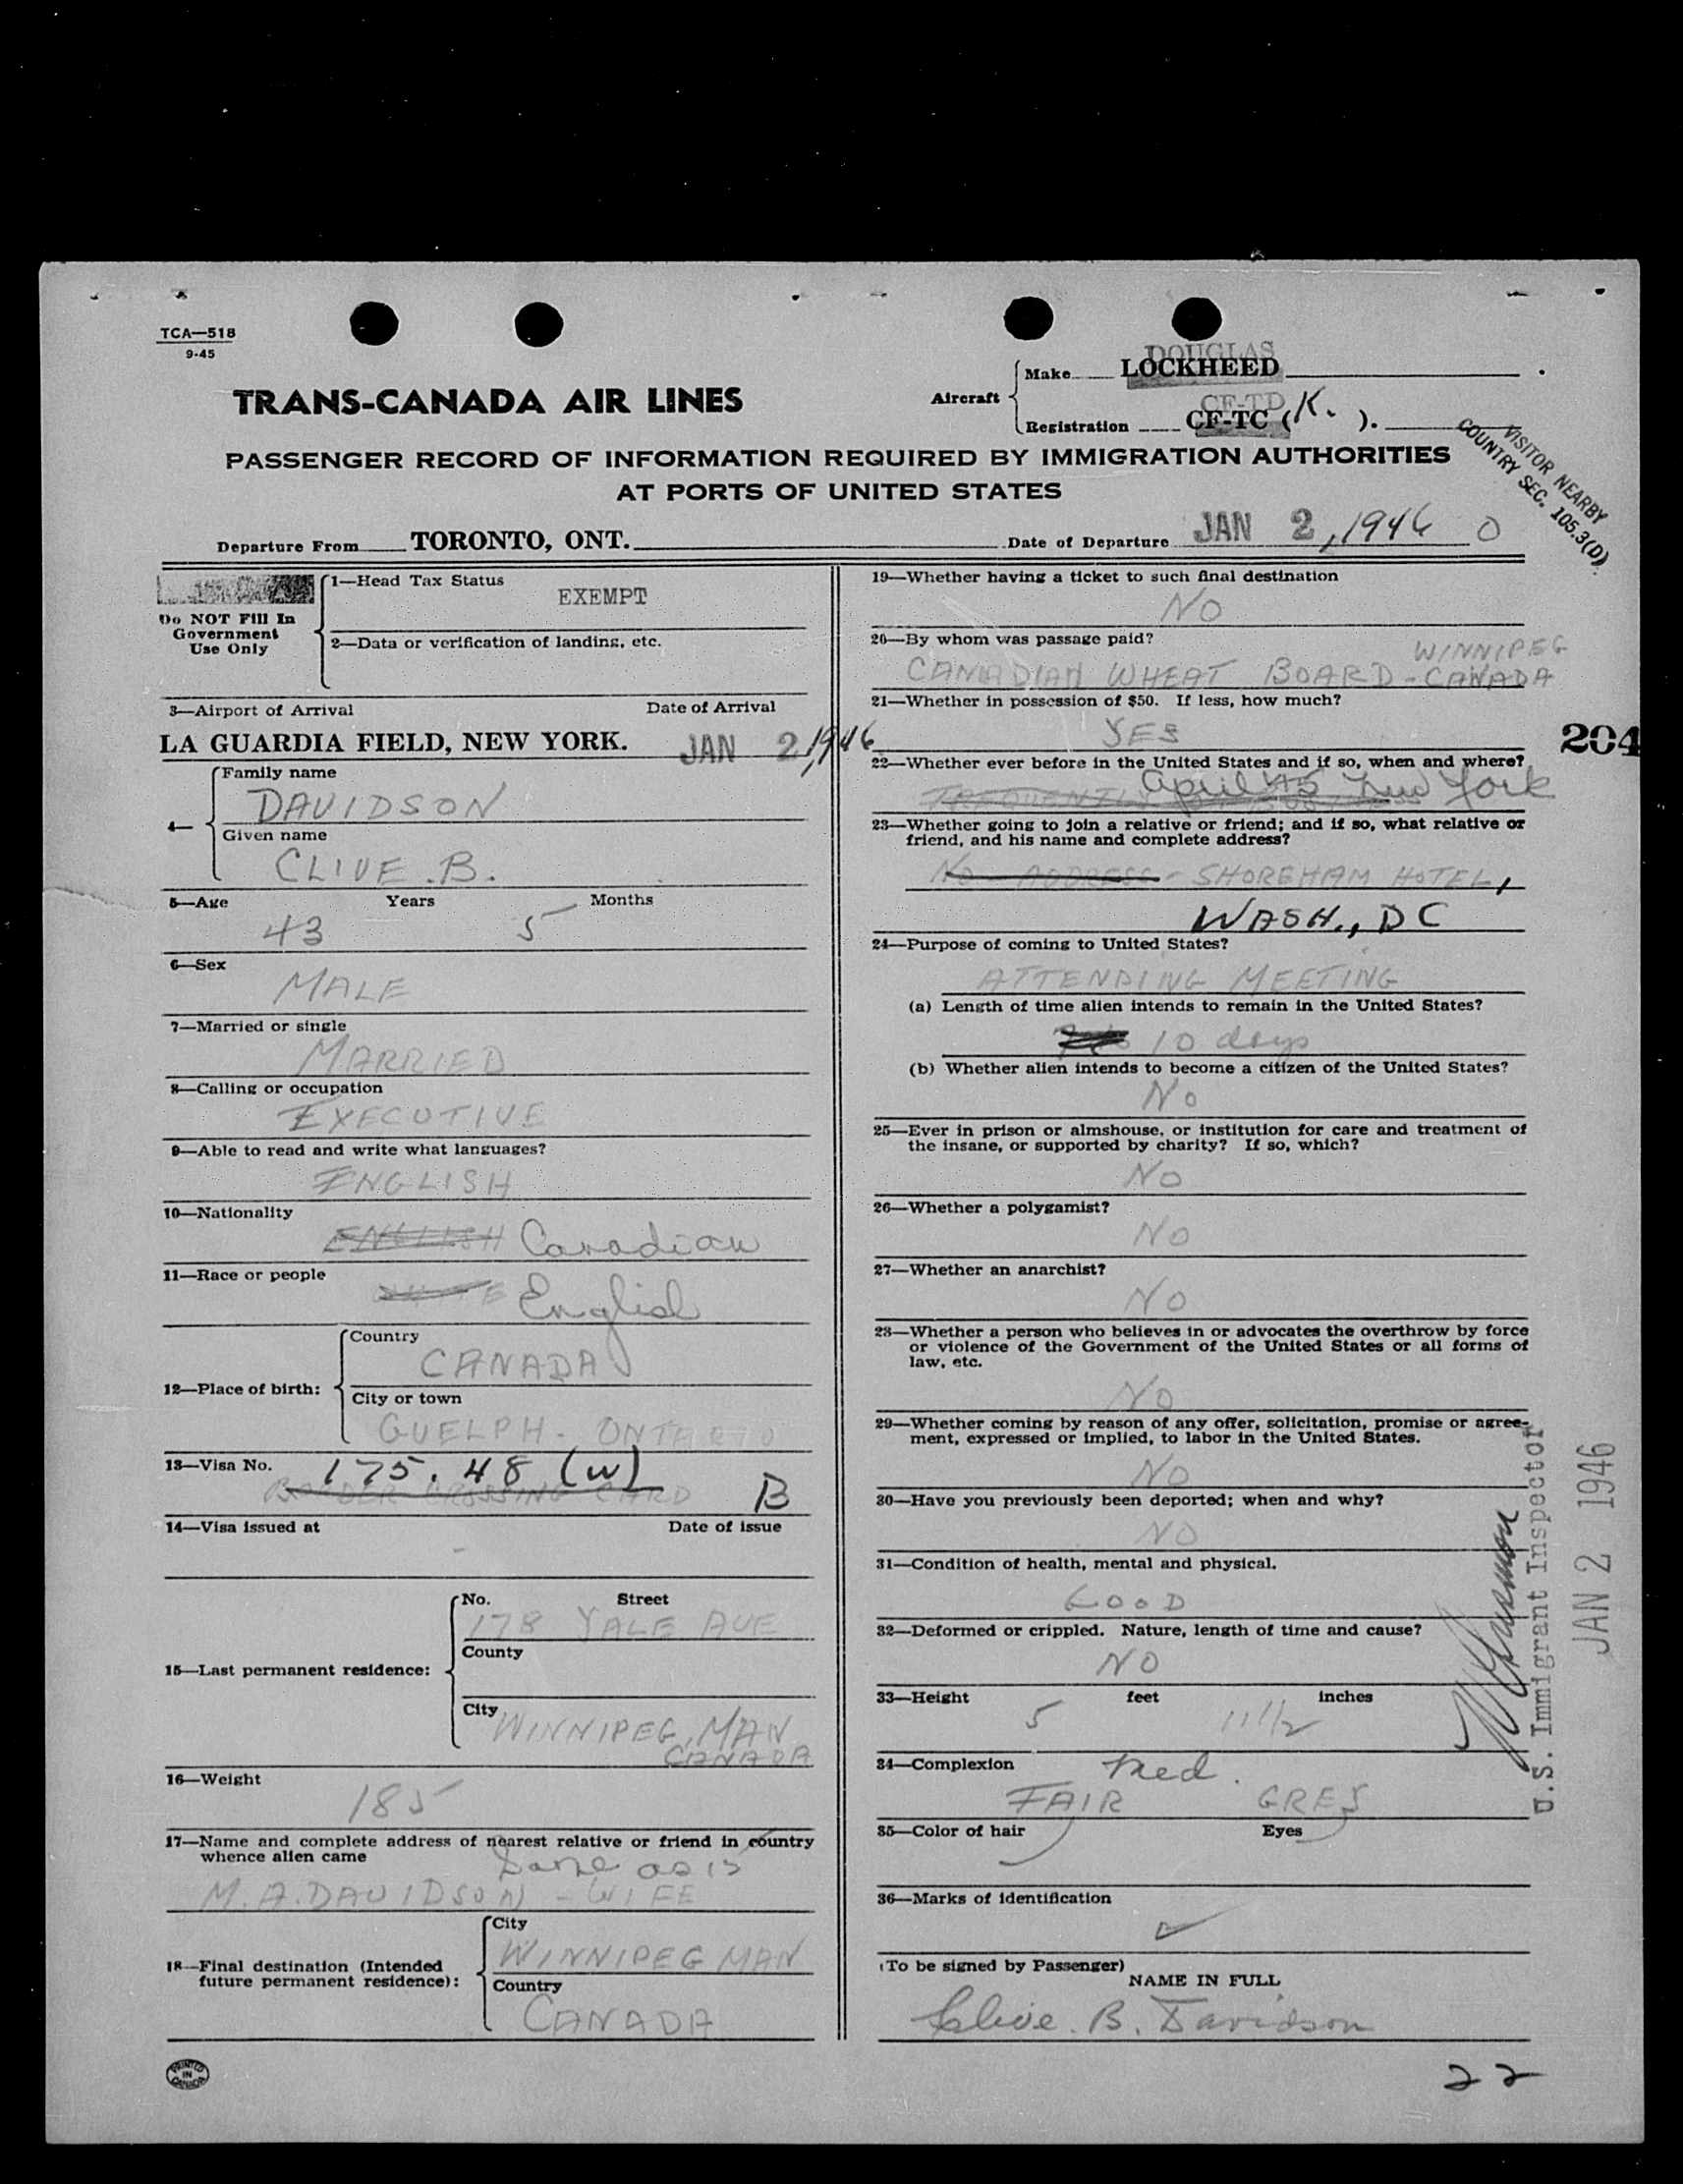 TCA—518
9-45
DOUGLAS
Aircraft
Make LOCKHEED
CF-TD
Registration CF-TC (K. ).
TRANS-CANADA AIR LINES
PASSENGER RECORD OF INFORMATION REQUIRED BY IMMIGRATION AUTHORITIES
AT PORTS OF UNITED STATES
VISITOR NEARBY
COUNTRY SEC. 105.3(D)
Departure From TORONTO, ONT. Date of Departure JAN 2, 1946 0
Do NOT Fill In
Government
Use Only
1—Head Tax Status
EXEMPT
2—Data or verification of landing, etc.
3—Airport of Arrival Date of Arrival
LA GUARDIA FIELD, NEW YORK. JAN 2, 1946
4—
Family name
DAVIDSON
Given name
CLIVE. B.
5—Age Years Months
43 5
6—Sex
MALE
7—Married or single
MARRIED
8—Calling or occupation
EXECUTIVE
9—Able to read and write what languages?
ENGLISH
10—Nationality
ENGLISH Canadian
11—Race or people
English
12—Place of birth:
Country
CANADA
City or town
GUELPH - ONTARIO
13—Visa No. 175.48 (W)
BORDER CROSSING CARD B
14—Visa issued at Date of issue
-
15—Last permanent residence:
No. Street
178 YALE AVE
County
City WINNIPEG, MAN
CANADA
16—Weight
185
17—Name and complete address of nearest relative or friend in country
whence alien came
Same as 15
M. A. DAVIDSON - WIFE
18—Final destination (Intended
future permanent residence):
City
WINNIPEG MAN
Country
CANADA
PRINTED
IN
CANADA
19—Whether having a ticket to such final destination
NO
20—By whom was passage paid?
WINNIPEG
CANADIAN WHEAT BOARD - CANADA
21—Whether in possession of $50. If less, how much?
YES
204
22—Whether ever before in the United States and if so, when and where?
April '45 New York
23—Whether going to join a relative or friend; and if so, what relative or
friend, and his name and complete address?
NO - ADDRESS - SHOREHAM HOTEL,
WASH., DC
24—Purpose of coming to United States?
ATTENDING MEETING
(a) Length of time alien intends to remain in the United States?
10 days
(b) Whether alien intends to become a citizen of the United States?
No
25—Ever in prison or almshouse, or institution for care and treatment of
the insane, or supported by charity? If so, which?
NO
26—Whether a polygamist?
NO
27—Whether an anarchist?
NO
28—Whether a person who believes in or advocates the overthrow by force
or violence of the Government of the United States or all forms of
law, etc.
NO
29—Whether coming by reason of any offer, solicitation, promise or agree-
ment, expressed or implied, to labor in the United States.
NO
30—Have you previously been deported; when and why?
NO
31—Condition of health, mental and physical.
GOOD
32—Deformed or crippled. Nature, length of time and cause?
NO
33—Height feet inches
5 11 1/2
34—Complexion Med.
FAIR GREY
35—Color of hair Eyes
36—Marks of identification
(To be signed by Passenger)
NAME IN FULL
Clive. B. Davidson
U.S. Immigrant Inspector
JAN 2 1946
22